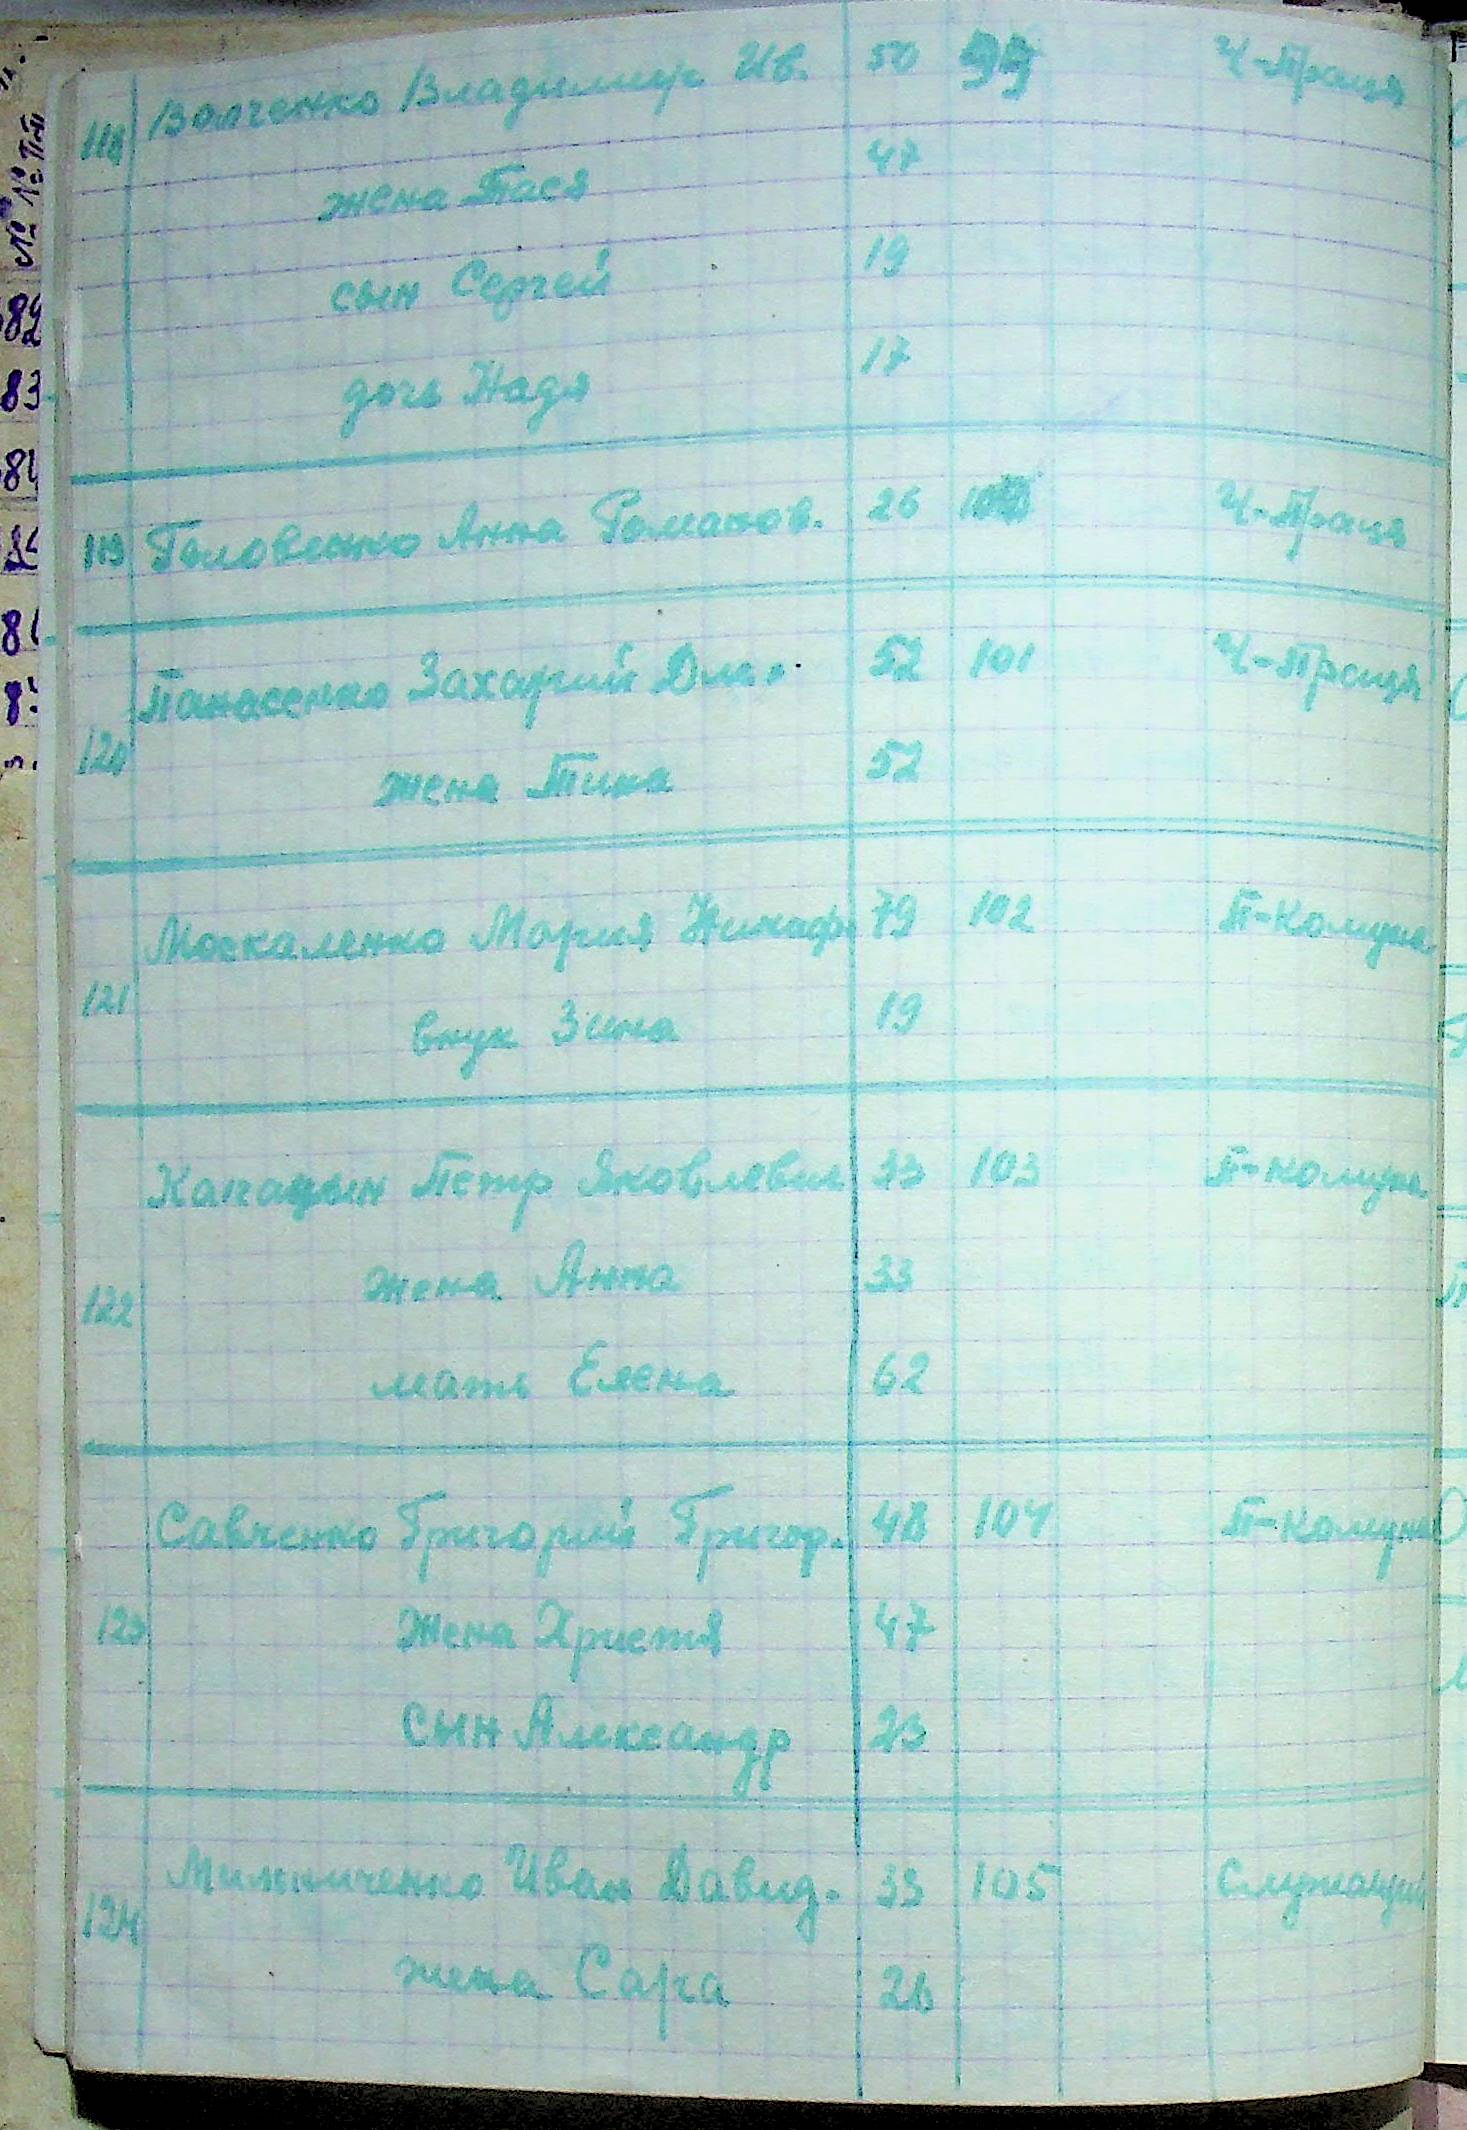 118 Волченко Владимир Ив. 50 99 Ч-Праця
жена Тася 47
сын Сергей 19
дочь Надя 17
119 Головенко Анна Роман­ов. 26 100 Ч-Праця
Панасенко Захарий Дм. 52 101 Ч-Праця
120 жена Тина 52
Москаленко Мария Никиф. 79 102 П-Комуна
121 внук Зина 19
Капацын Петр Яковлевич 33 103 П-Комуна
122 жена Анна 33
мать Елена 62
Савченко Григорий Григор. 48 104 П-Комуна
123 жена Христя 47
сын Александр 23
124 Иван Давид. 33 105 Служащий
жена Сара 26
№№ пп
82
83
84